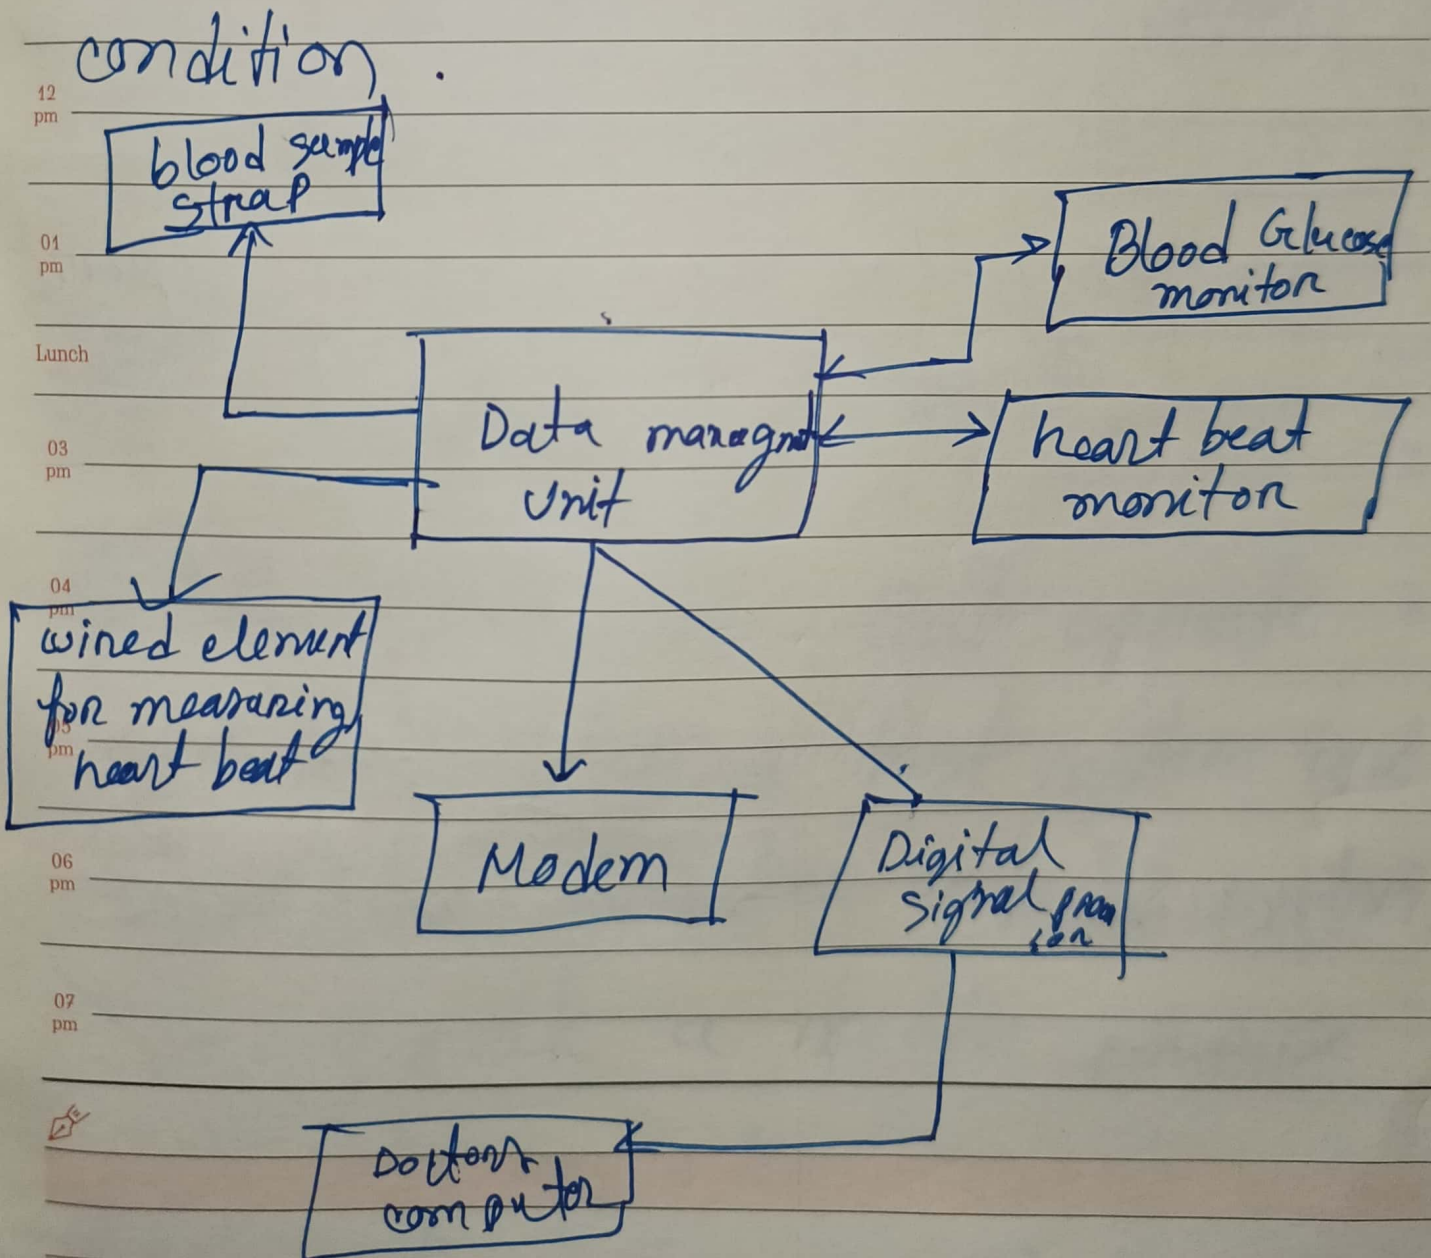 condition.
12
pm
blood sample
strap
01
pm
Blood Glucose
monitor
Lunch
Data managmnt
Unit
heart beat
monitor
03
pm
04
pm
wired element
for measuring
heart beat
05
pm
Modem
Digital
signal
06
pm
07
pm
Doctors
computor